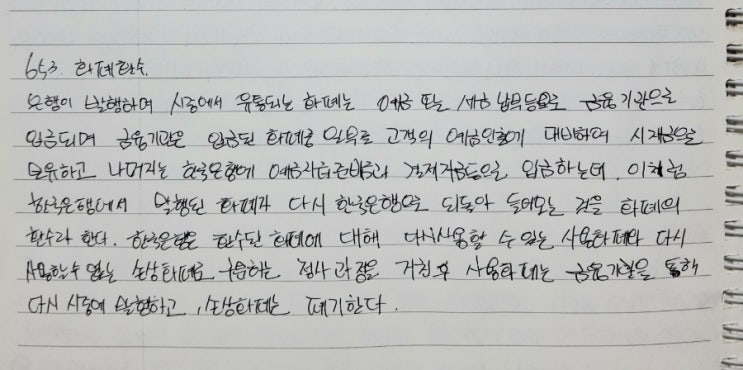 653. 화폐환수.
은행이 발행하며 시중에서 유통되는 화폐는 예금 또는 세금 납부등으로 금융기관으로
입금되며 금융기관은 입금된 화폐중 일부로 고객의 예금인출에 대비하여 시재금으로
보유하고 나머지는 한국은행에 예금지급준비금과 결제자금등으로 입금하는데, 이처럼
한국은행에서 발행된 화폐가 다시 한국은행으로 되돌아 들어오는 것을 화폐의
환수라 한다. 한국은행은 환수된 화폐에 대해 다시사용할 수 있는 사용화폐와 다시
사용할수 없는 손상화폐로 구분하는 정사과정을 거친후 사용화폐는 금융기관을 통해
다시 시중에 발행하고, 손상화폐는 폐기한다.